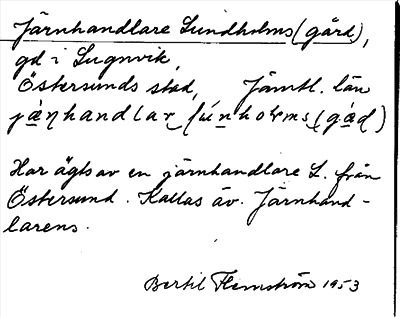 Järnhandlare Lundholms (gård),
gd i Lugnvik,
Östersunds stad, Jämtl. län
jæṇhandlar lúnhoɫms (gád)
Har ägts av en järnhandlare L. från
Östersund. Kallas äv. Järnhand-
larens.
Bertil Flemström 1953